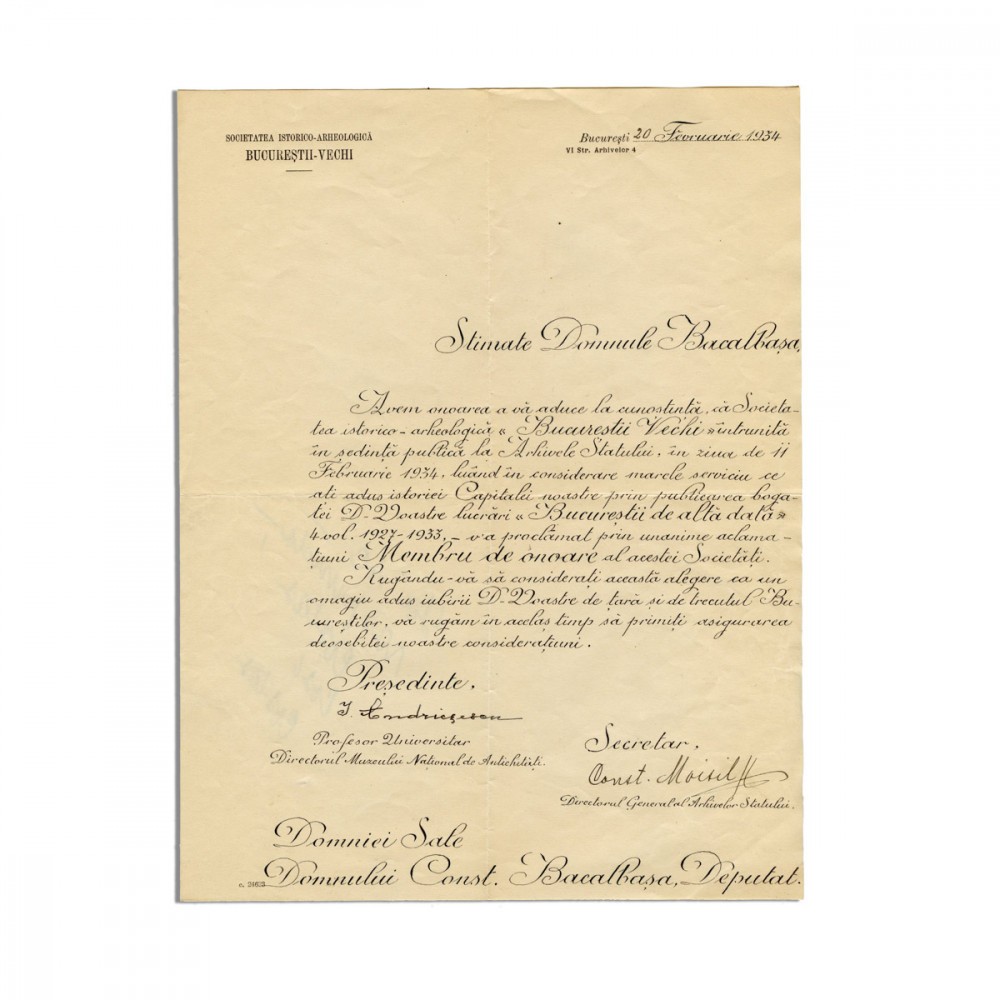 SOCIETATEA ISTORICO-ARHEOLOGICĂ
BUCUREȘTII-VECHI
București 20 Februarie 1934
VI Str. Arhivelor 4
Stimate Domnule Bacalbașa,
Avem onoarea a vă aduce la cunostintă, că Societa-
tea istorico-arheologică « Bucurestii Vechi » întrunită
în sedință publică la Arhivele Statului, în ziua de 11
Februarie 1934, luând în considerare marele serviciu ce
ati adus istoriei Capitalei noastre prin publicarea boga-
tei D-Voastre lucrări « Bucureștii de altă dată »
4 vol. 1927-1933, - v'a proclamat prin unanime aclama-
tiuni Membru de onoare al acestei Societăți.
Rugându-vă să considerati această alegere ca un
omagiu adus iubirii D-Voastre de țară și de trecutul Bu-
cureștilor, vă rugăm în acelas timp să primiți asigurarea
deosebitei noastre considerațiuni.
Președinte,
I. Andrieșescu
Profesor Universitar
Directorul Muzeului Național de Antichități.
Secretar,
Const. Moisil
Directorul General al Arhivelor Statului.
Domniei Sale
Domnului Const. Bacalbașa, Deputat.